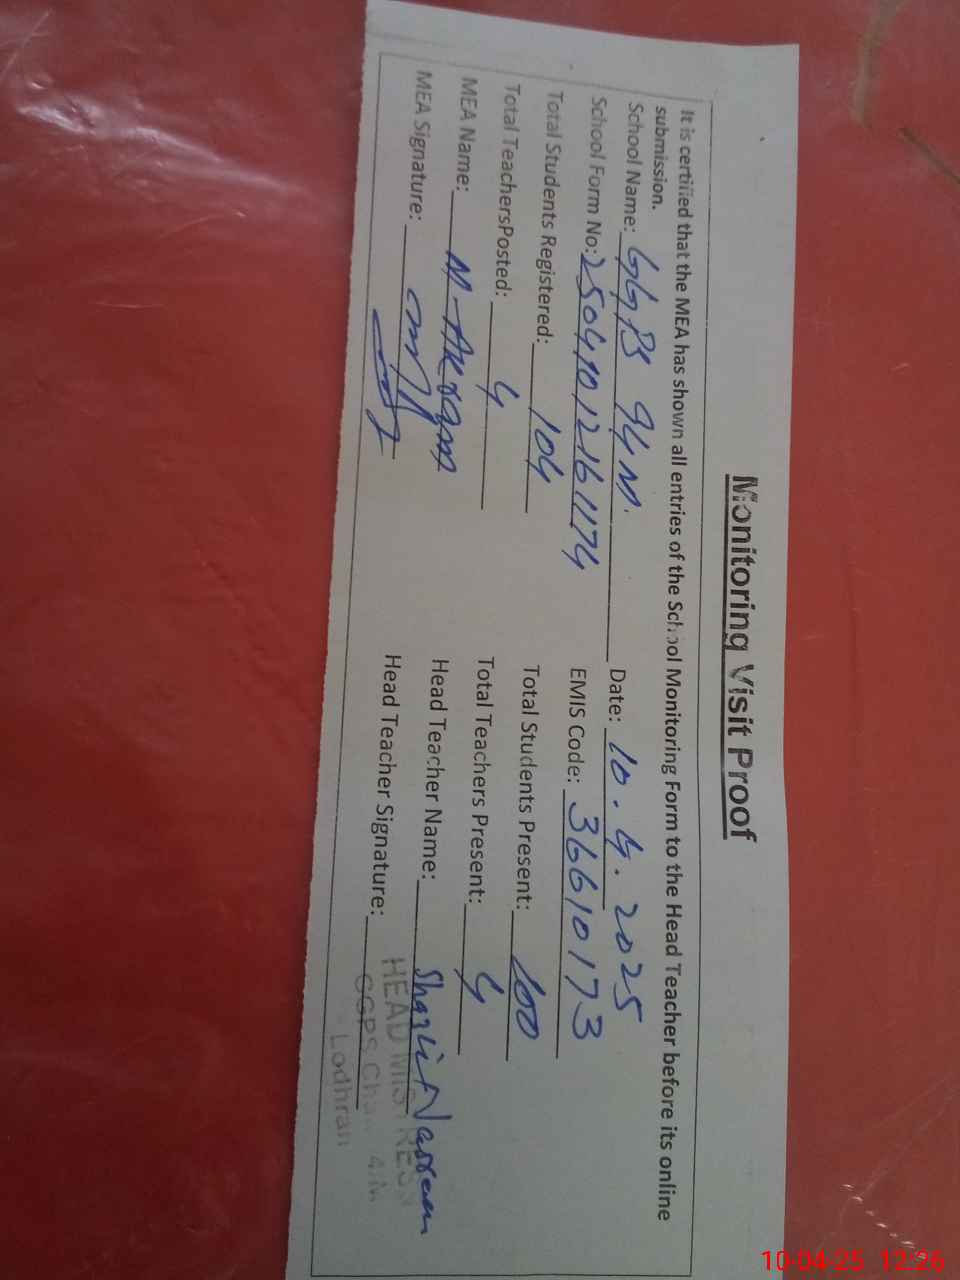 Monitoring Visit Proof
It is certified that the MEA has shown all entries of the School Monitoring Form to the Head Teacher before its online
submission.
School Name: GGPS 94 M. Date: 10.4.2025
School Form No: 2504101216 1174 EMIS Code: 36610173
Total Students Registered: 104 Total Students Present: 100
Total TeachersPosted: 4 Total Teachers Present: 4
MEA Name: M-Akram Head Teacher Name: Shazli Nasreen
MEA Signature: Head Teacher Signature:
HEAD MISTRESS
GGPS Chak
Lodhran
10-04-25 12:26